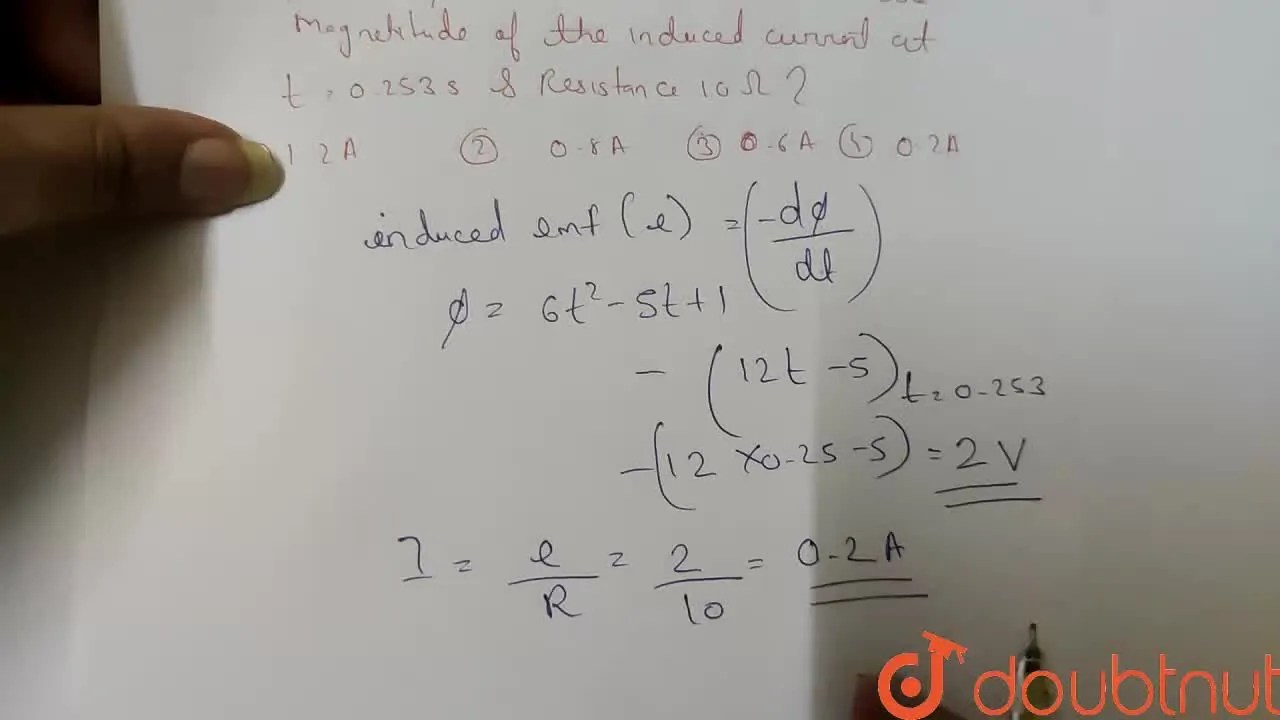 Magnetitude of the induced current at
t = 0.253 s & Resistance 10 Ω ?
1 2 A ② 0.8 A ③ 0.6 A ④ 0.2 A
induced emf (e) = (-dφ/dt)
φ = 6t² - 5t + 1
- (12t - 5) t = 0.253
- (12 × 0.25 - 5) = 2 V
I = e/R = 2/10 = 0.2 A
doubtnut